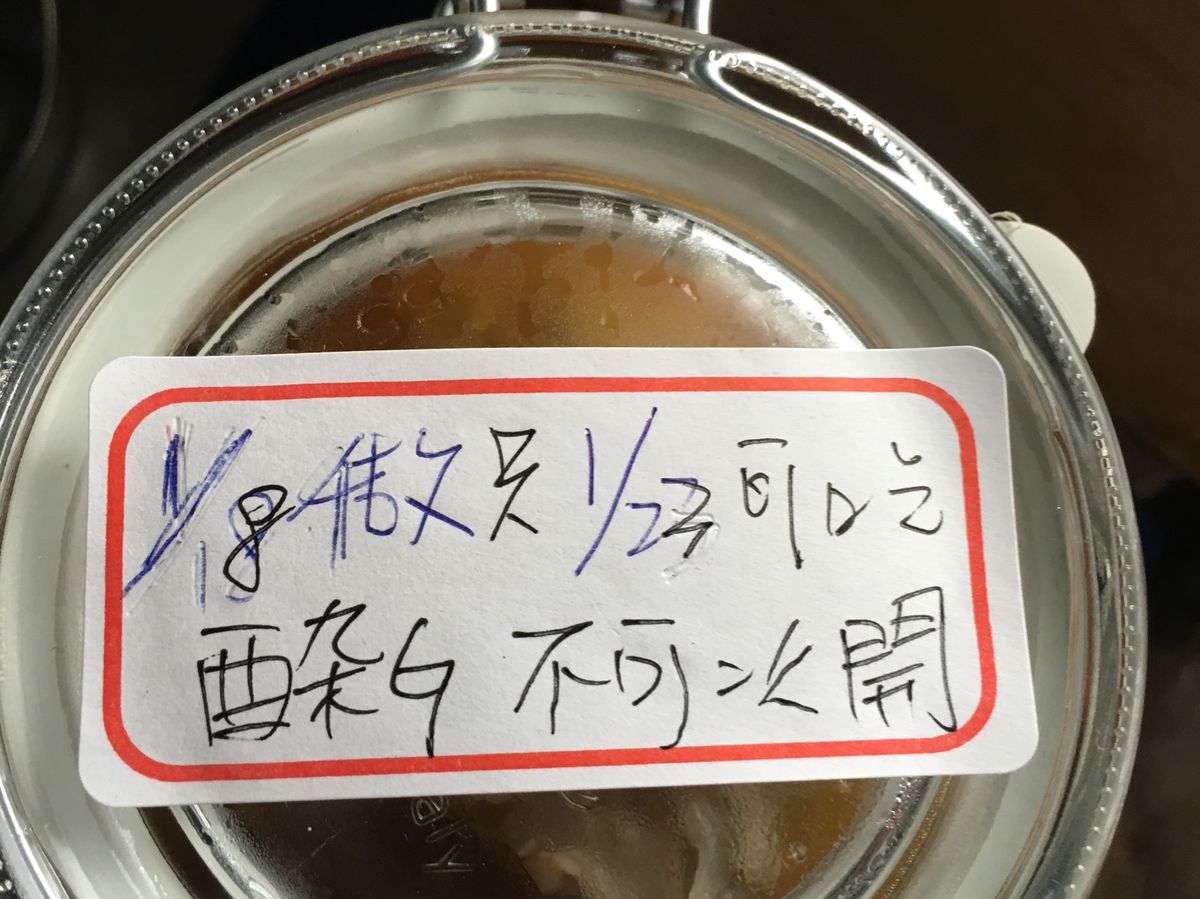 1/18 做只 1/23 可吃
不可以開